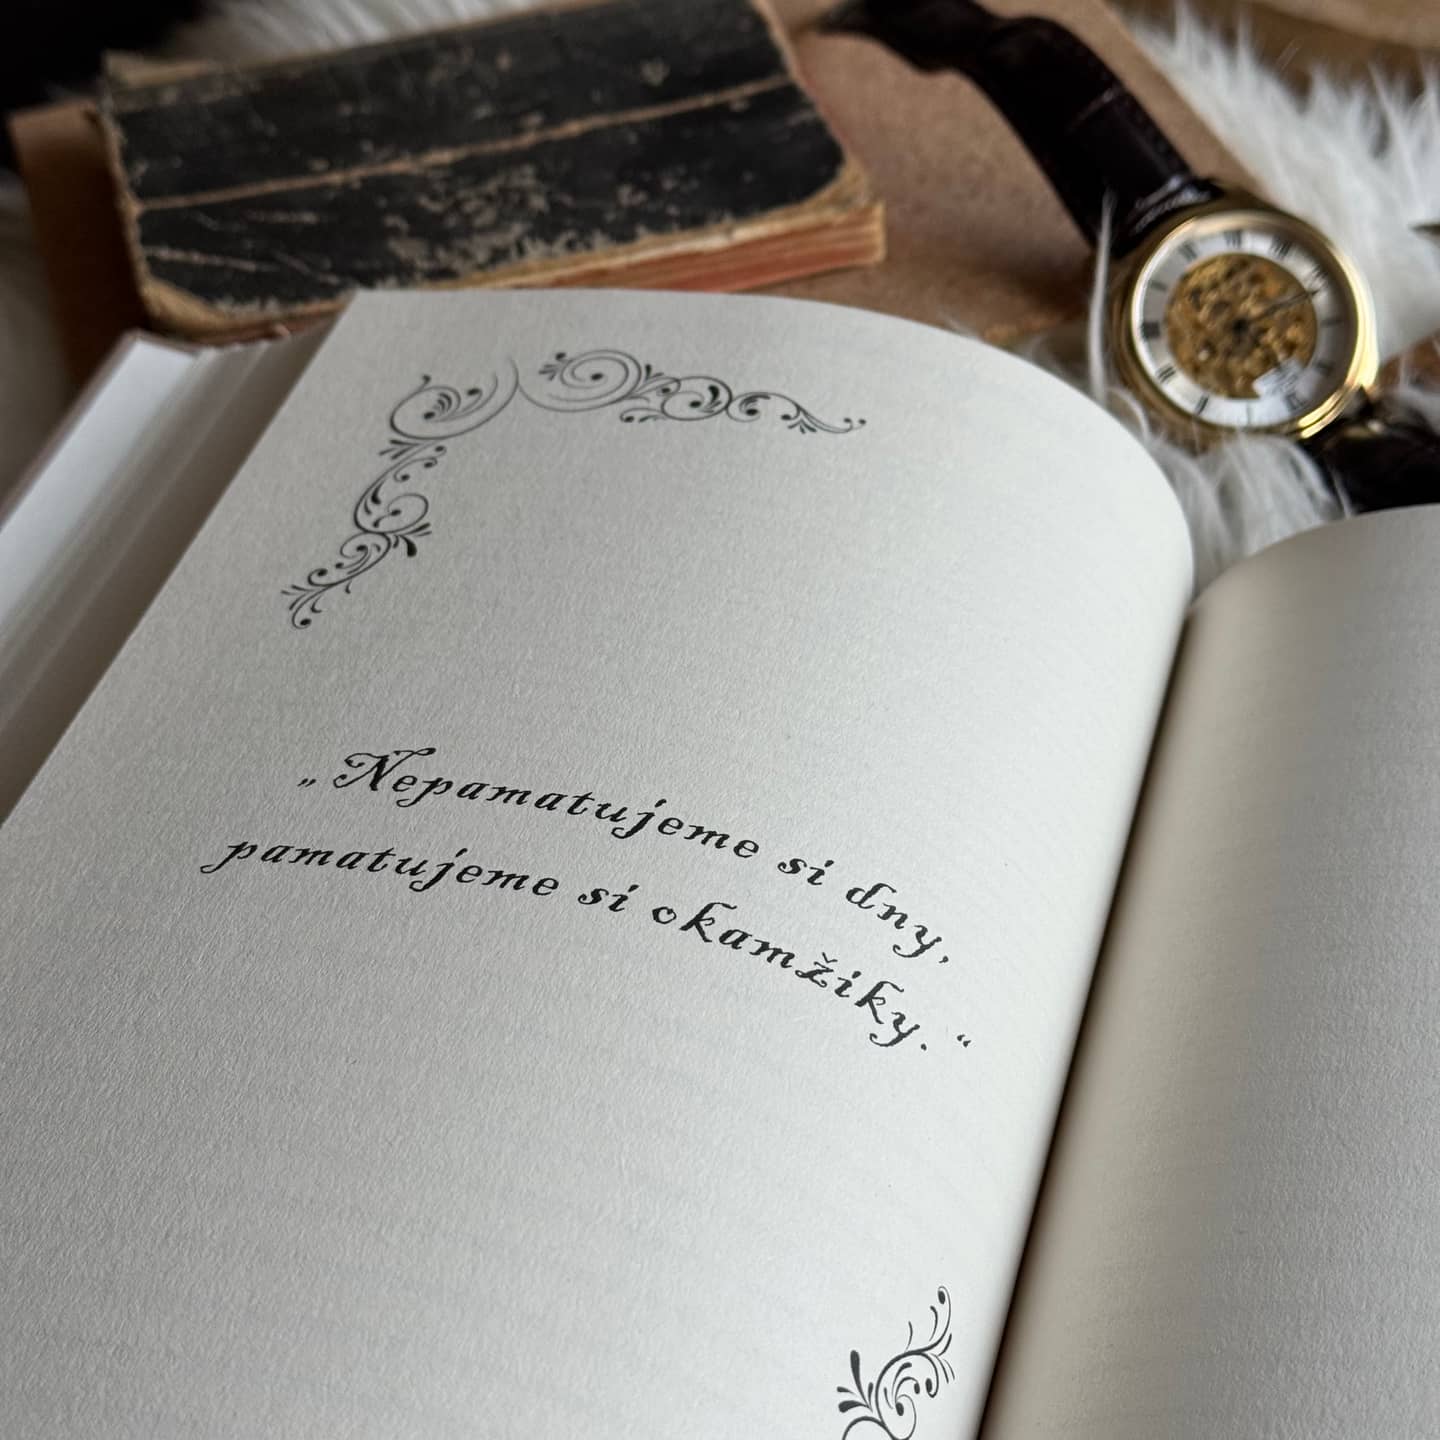 „Nepamatujeme si dny,
pamatujeme si okamžiky.“